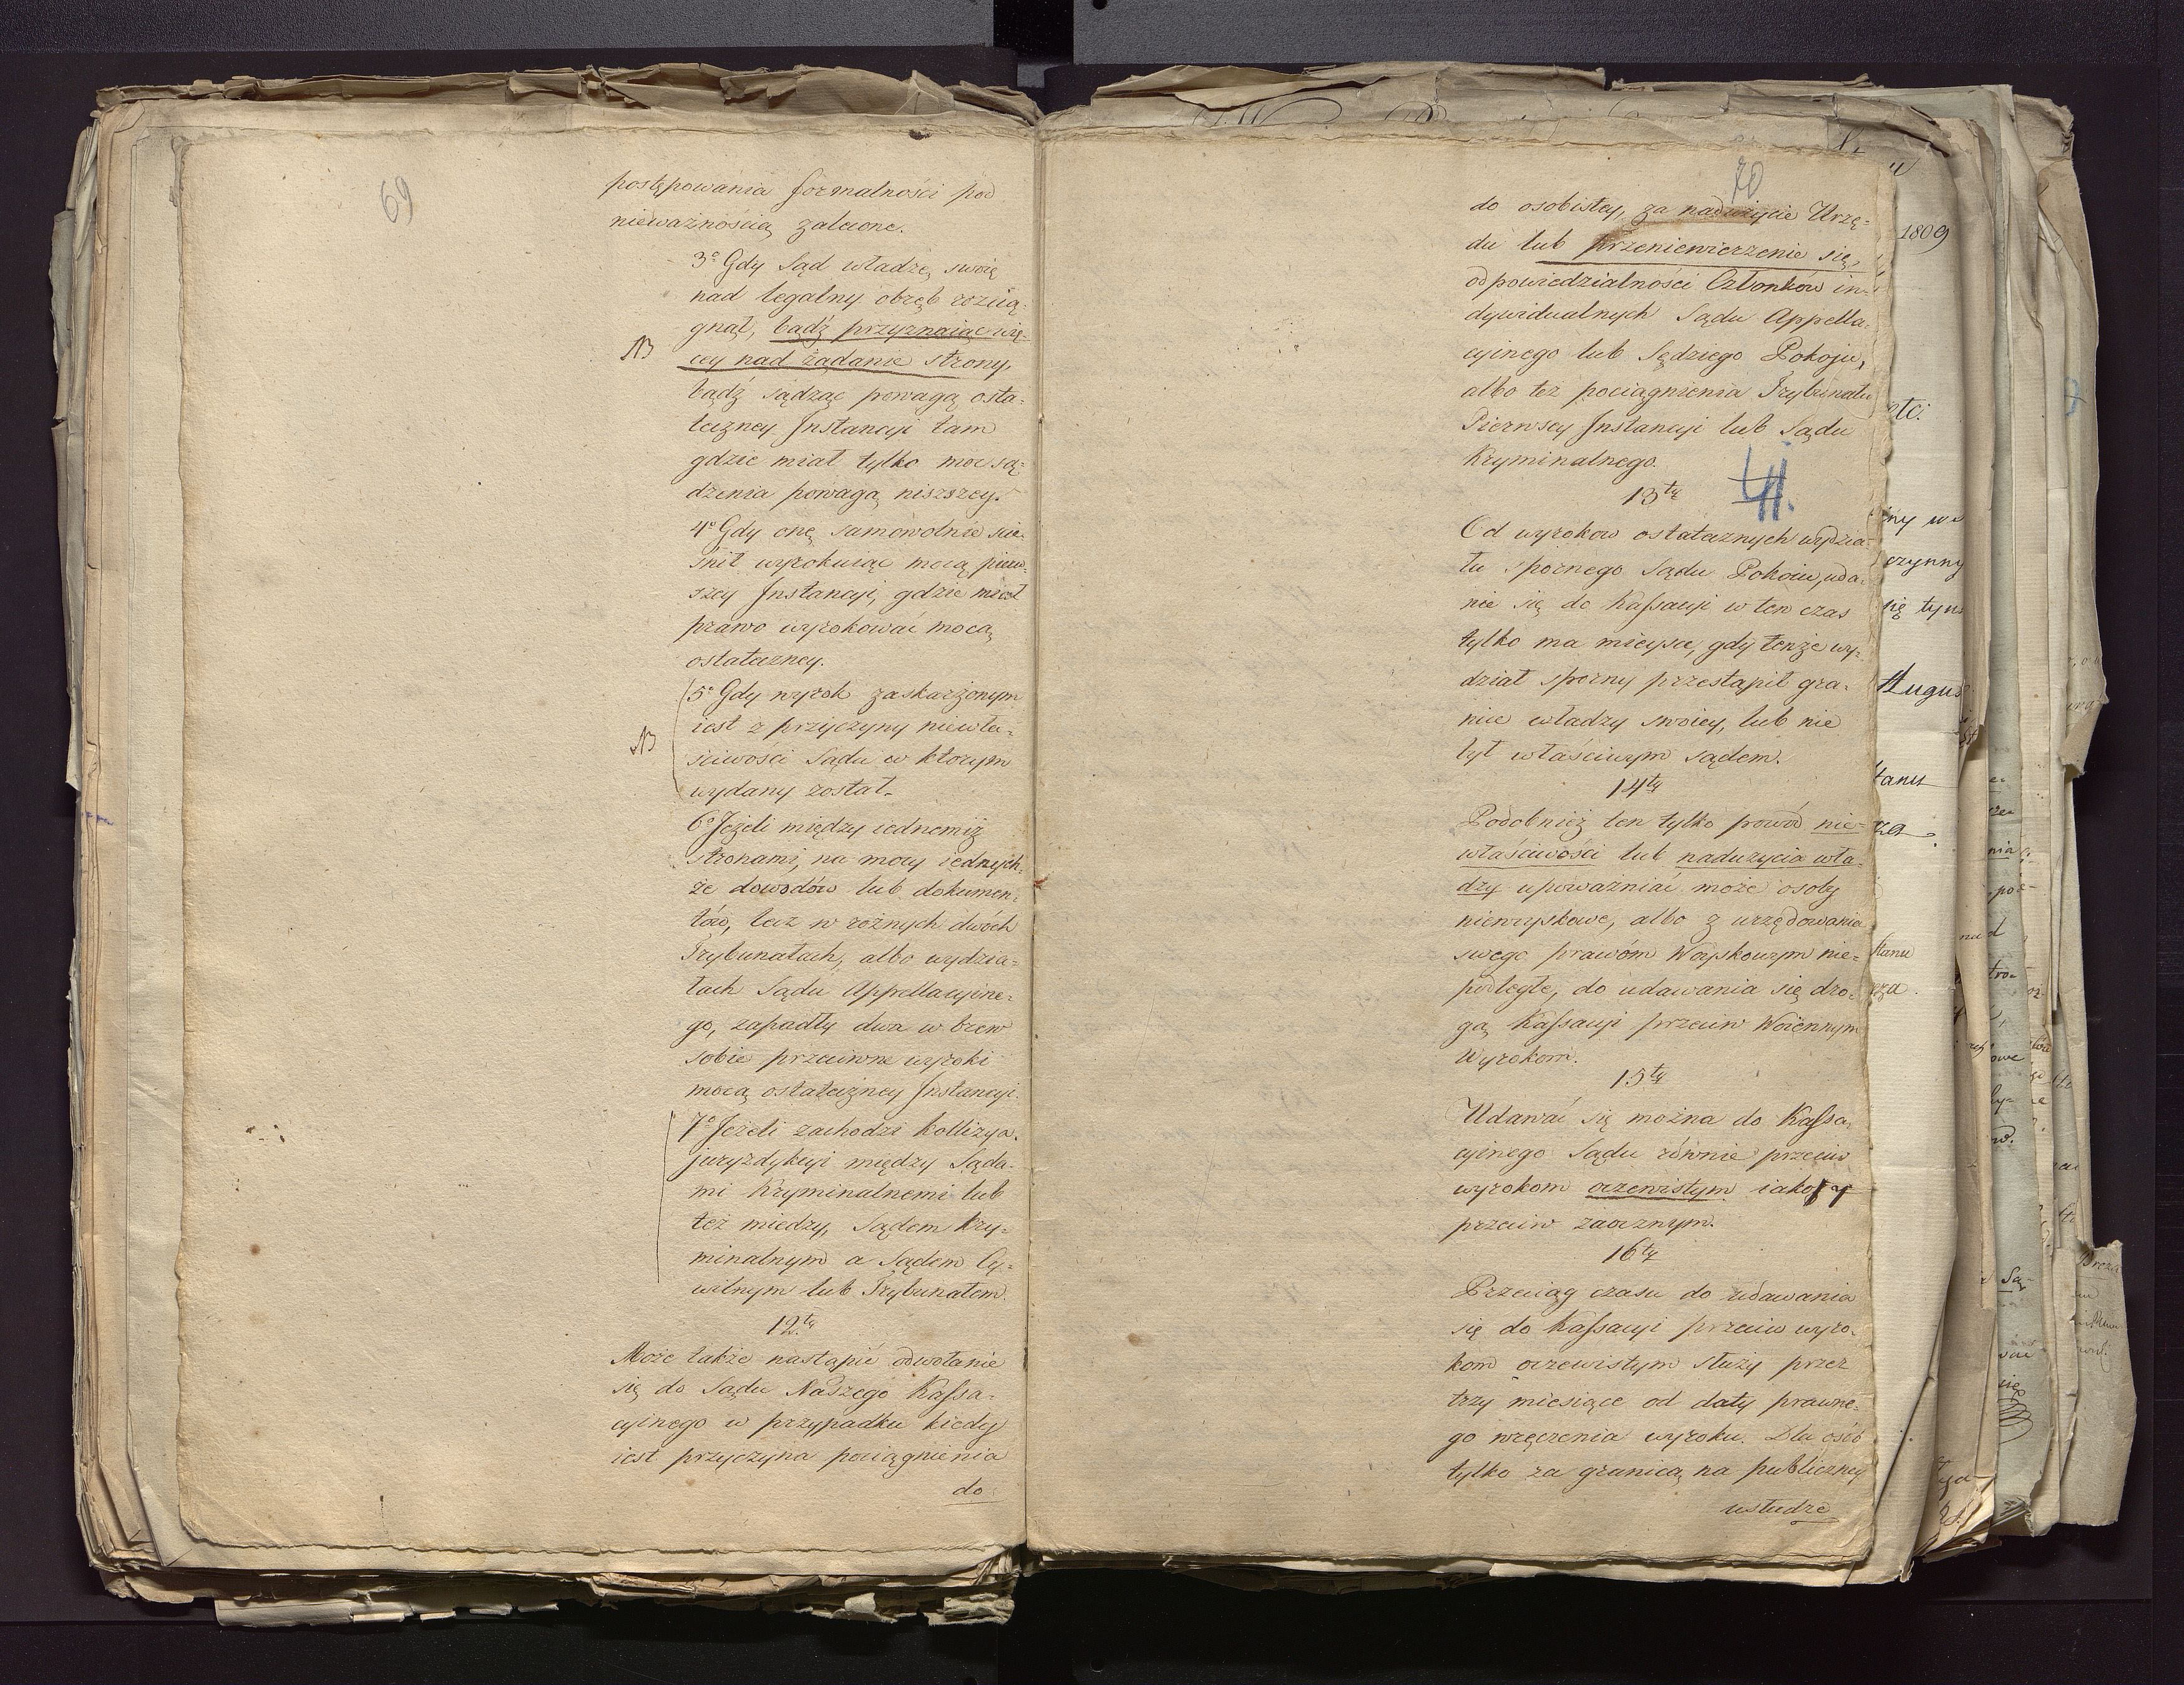 69
postępowania formalności pod
nieważnością zalecone.
3e Gdy Sąd władzę swoię
nad legalny obręb rozcią-
gnął, bądź przyznaiąc wię-
NB
cey nad żądanie strony,
bądź sądząc powagą osta-
teczney Instancyi tam
gdzie miał tylko moc są-
dzenia powagą niższzey.
4o Gdy onę samowolnie ście-
śnił wyrokuiąc mocą pierw-
szey Instancyi, gdzie miał
prawo wyrokować mocą
ostateczney.
5o Gdy wyrok zaskarżonym
iest z przyczyny niewła-
NB
ściwości Sądu w ktorym
wydany został.
6o Jeżeli między iednemiż
stronami, na mocy iednych-
że dowodów lub dokumen-
tów, lecz w rożnych dwóch
Trybunałach, albo wydzia-
łach Sądu Appellacyine-
go, zapadły dwa w brew
sobie przeciwne wyroki
mocą ostateczney Instancyi.
7o Jeżeli zachodzi kollizya
juryzdykcyi między Sąda-
mi Kryminalnemi lub
też miedzy, Sądem Kry-
minalnym a Sądem Cy-
wilnym lub Trybunałem.
12ty
Może także nastąpić odwołanie
się do Sądu Naszego Kassa-
cyinego w przypadku kiedy
iest przyczyna pociągnienia
do
70
do osobistey, za nadużycie Urzę-
du lub przeniewierzenie się,
odpowiedzialności Członków in-
dywidualnych Sądu Appella-
cyinego lub Sędziego Pokoju,
albo też pociągnienia Trybunału
Pierwszey Instancyi lub Sądu
Kryminalnego.
13ty
41.
Od wyrokow ostatecznych wydzia-
łu spornego Sądu Pokoiu, uda-
nie się do Kassacyi w ten czas
tylko ma mieysce, gdy tenże wy-
dział sporny przestąpił gra-
nice władzy swoiey, lub nie
był właściwym sądem.
14ty
Podobnież ten tylko powód nie-
właściwości lub nadużycia wła-
dzy upoważniać może osoby
niewoyskowe, albo z urzędowania
swego prawóm Woyskowym nie-
podległe, do udawania się dro-
gą Kassacyi przeciw Woiennym
Wyrokom.
15ty
Udawać się można do Kassa-
cyinego Sądu równie przeciw
wyrokom oczewistym iako y
przeciw zaocznym.
16ty
Przeciąg czasu do udawania
się do Kassacyi przeciw wyro-
kom oczewistym służy przez
trzy miesiące od daty prawne-
go wręczenia wyroku. Dla osób
tylko za granicą na publiczney
usłudze
1809